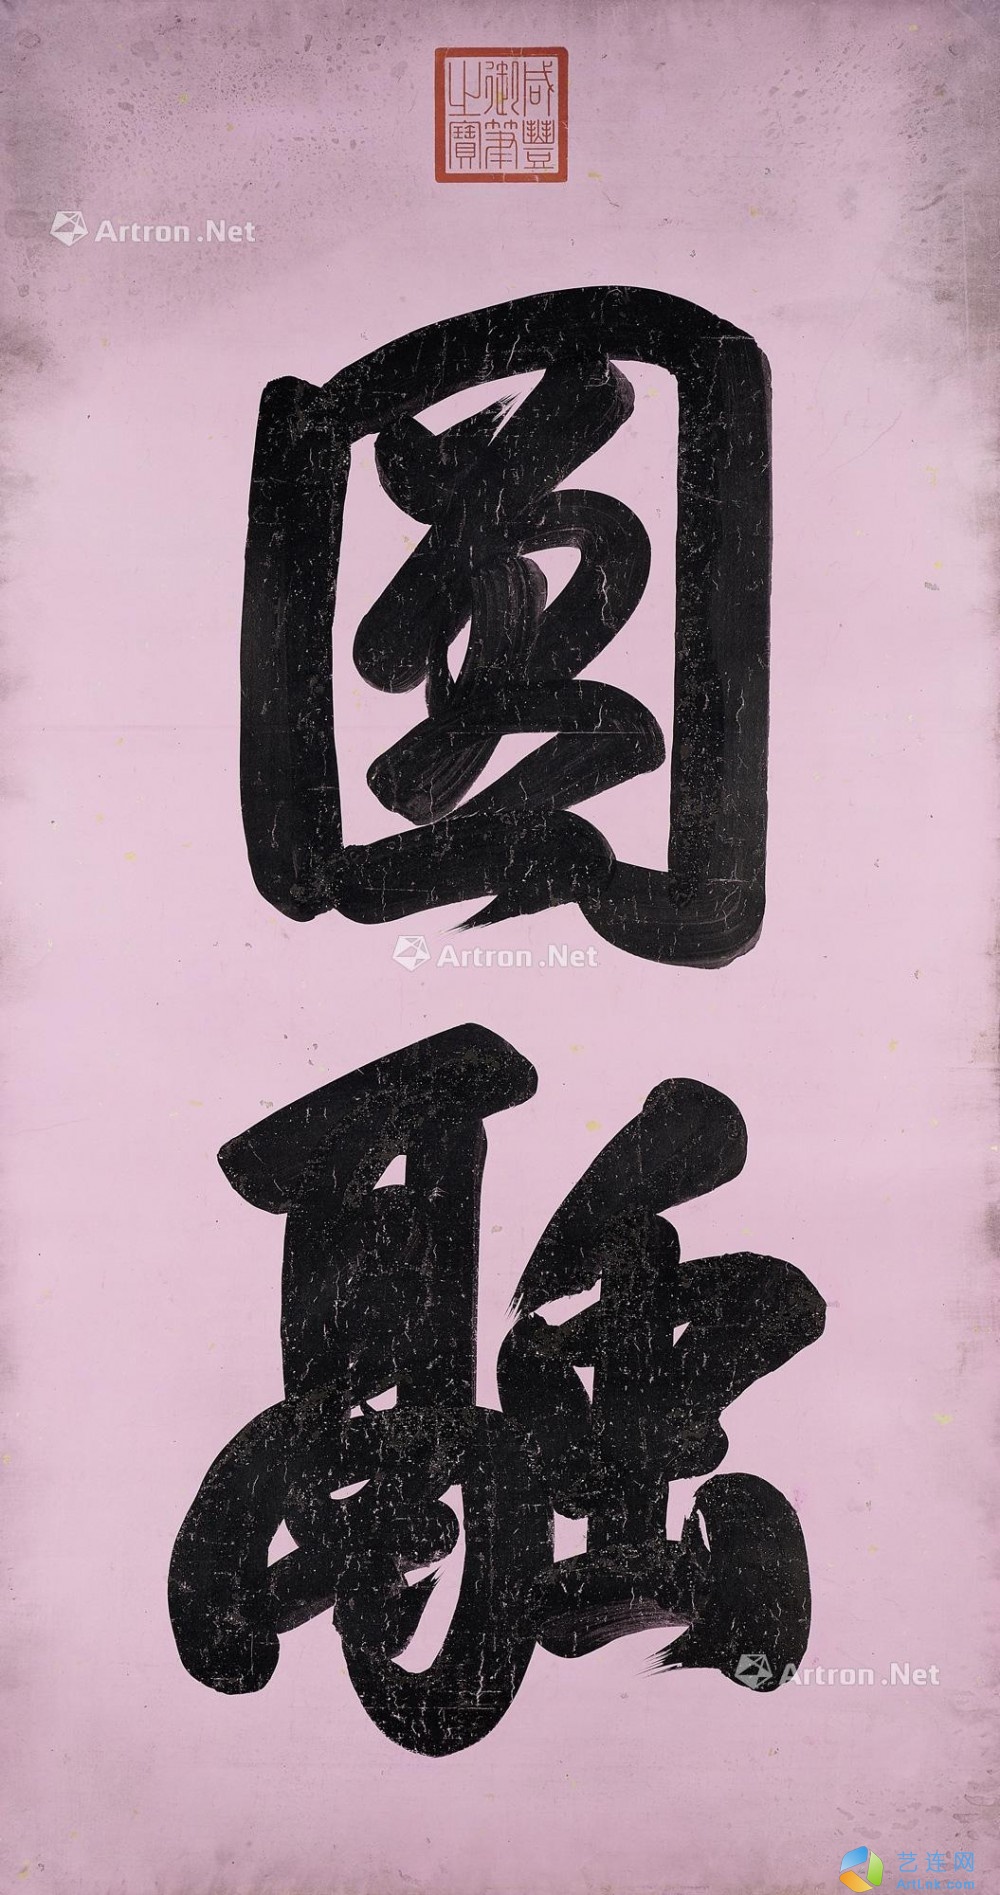 咸豐
御筆
之寶
圓
融
Artron.Net
Artron.Net
Artron.Net
艺连网
ArtLek.com